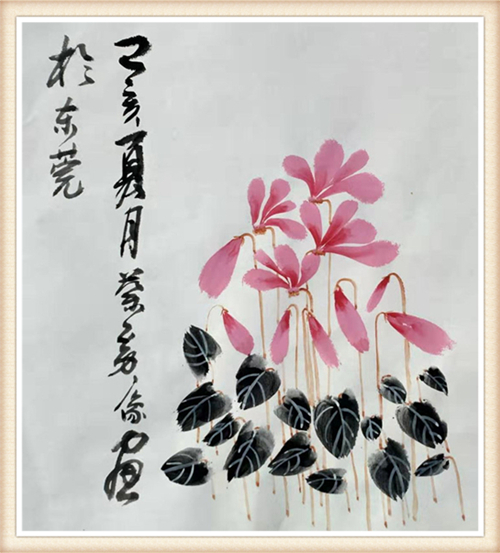 己亥夏月画
於东莞